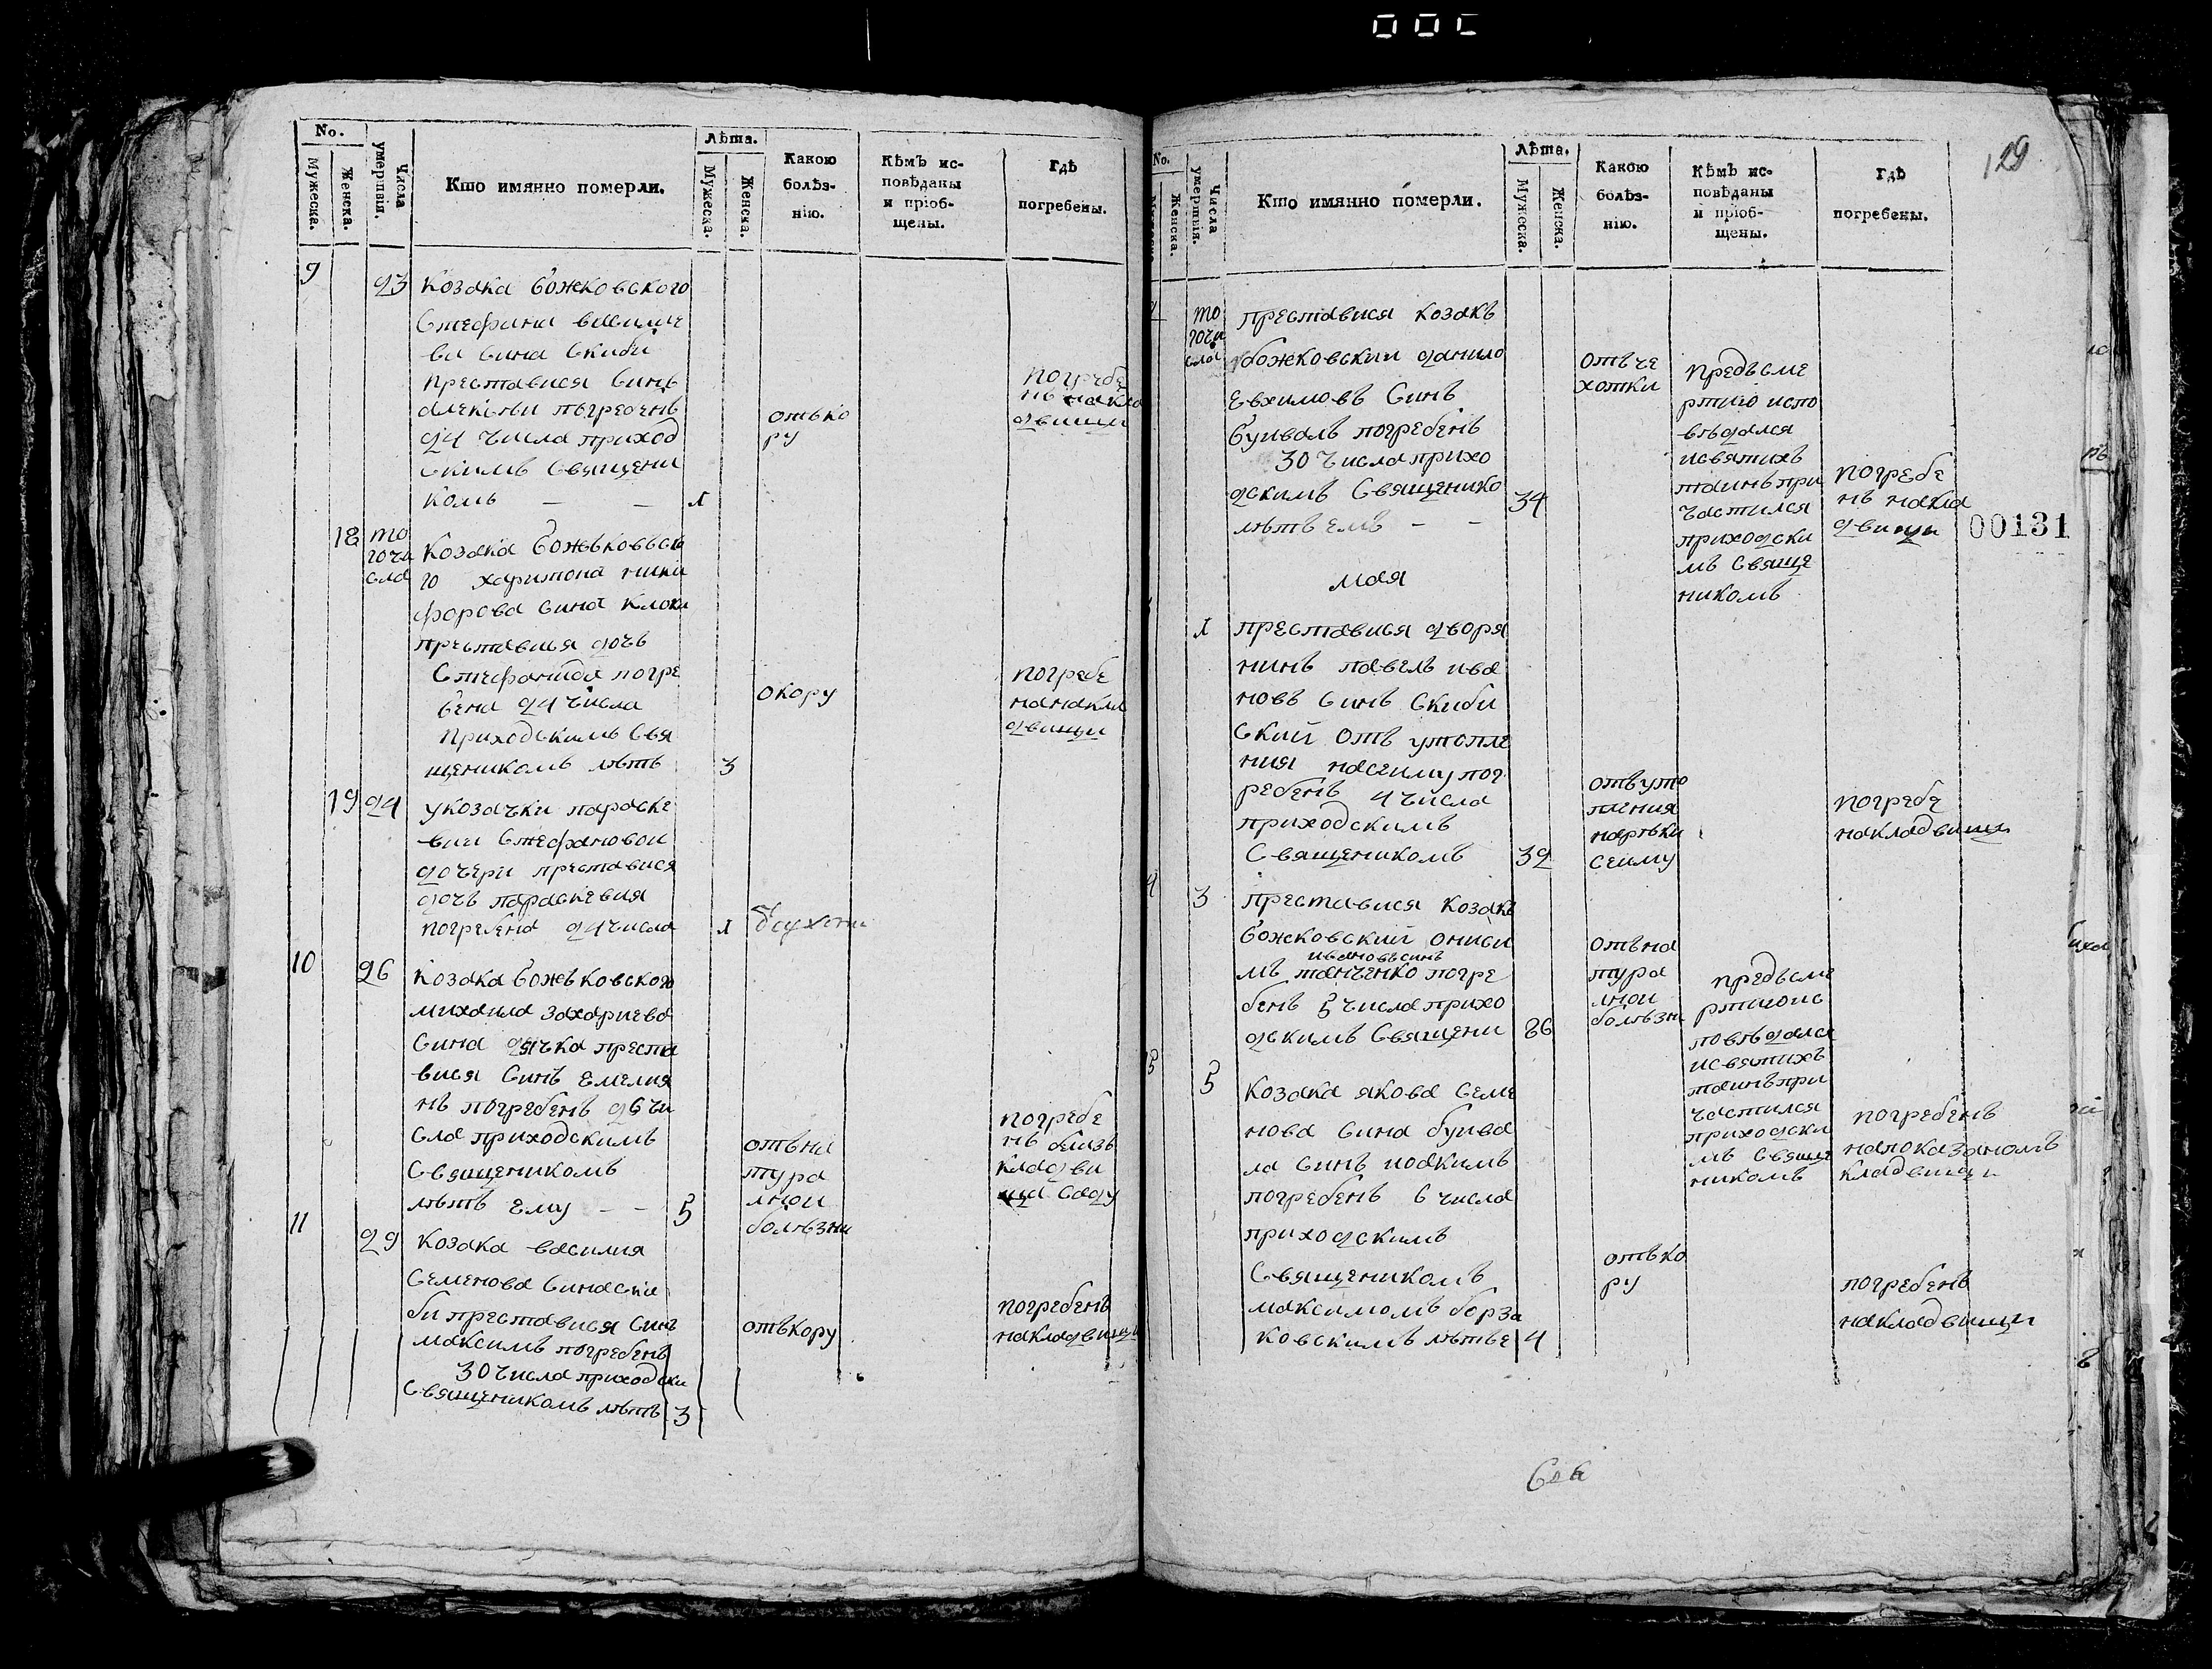 No.
Мужеска.
Женска.
Числа умертвія.
Кто имянно померли.
Лѣта.
Мужеска.
Женска.
Какою болѣз-
нію.
Кѣмъ ис-
повѣданы
и пріоб-
щены.
Гдѣ
погребены.
9 23 козака божковского
Стефана василие
ва сина скиби
преставися синъ
алексѣи погребенъ
24 числа приход
скимъ священи
комъ — — 1
отъко
ру
погребе
нъ накла
двищи
18 то
гочи
сла
козака божьковско
го харитона ники
форова сина клоки
преставися дочь
Стефанида погре
бена 24 числа
приходскимъ свя
щеникомъ лѣтъ 3
окору
погребе
нанакла
двищи
19 24 укозачки параске
вии Стефановои
дочери преставися
дочь параскевия
погребена 24 числа 1
10 26 козака божьковского
михаила захариева
сина дячка преста
вися синъ емелия
нъ погребенъ 26 чи
сла приходскимъ
священикомъ
лѣтъ ему — — 5
отъна
тура
лнои
болѣзни
погребе
нъ близъ
кладви
ща саду
11 29 козака василия
Семенова сина ски
би преставися синъ
максимъ погребенъ
30 числа приходски
священикомъ лѣтъ 3
отъкору
погребенъ
накладвищи
129
No.
Женска.
Числа умертвія.
Кто имянно померли.
Лѣта.
Мужеска.
Женска.
Какою
болѣз-
нію.
Кѣмъ ис-
повѣданы
и пріоб-
щены.
Гдѣ
погребены.
то
гочи
сла
преставися козакъ
божковскии данило
Евхимовъ синъ
буивалъ погребенъ
30 числа прихо
дскимъ священико
лѣтъ емъ — — 34
отъче
хотки
предъсме
ртию испо
вѣдался
исвятихъ
таинъпри
частился
приходски
мъ свяще
никомъ
погребе
нъ накла
двищи
00131
мая
1 преставися дворя
нинъ павелъ ива
новъ синъ скиби
ский отъ утопле
ния насеиму пог
ребенъ 4 числа
приходскимъ
священикомъ 32
отъуто
пления
нарѣки
сеиму
погребе
накладвищи
3 преставися козакъ
божковский ониси
ивановъсинъ
мъ танченко погре
бенъ 5 числа прихо
дскимъ священи 86
отъна
тура
лнои
болѣзни
предъсме
ртиюис
повѣдался
исвятихъ
таинъпри
частился
приходски
мъ свяще
никомъ
погребенъ
напоказаномъ
кладвищи
5 козака якова Семе
нова сина буива
ла синъ иоакимъ
погребенъ 6 числа
приходскимъ
священикомъ
максимомъ борза
ковскимъ лѣтъе 4
отъко
ру
погребенъ
накладвищи